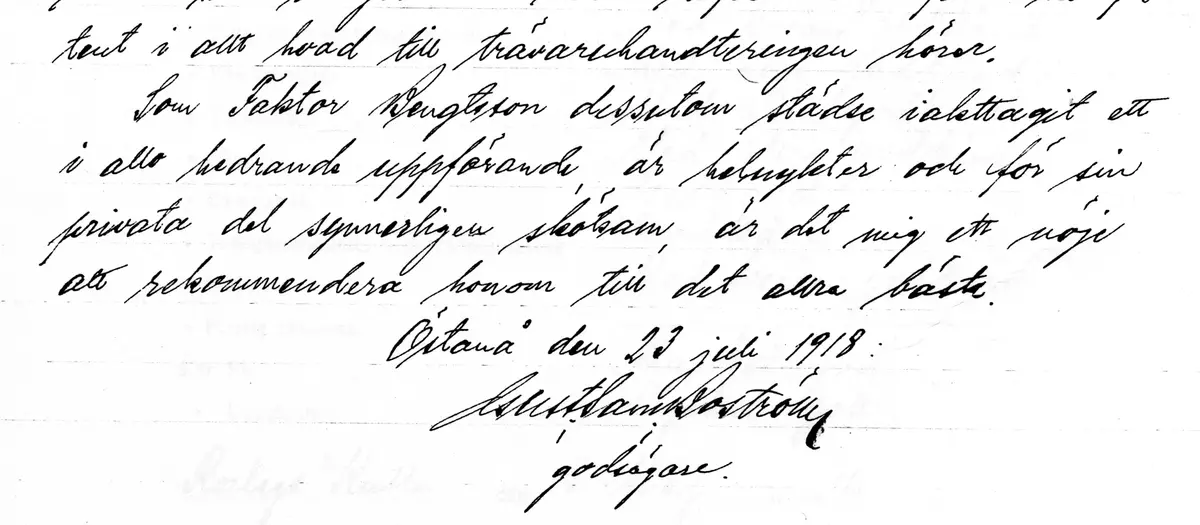 tent i allt hvad till trävaruhandteringen hörer.
Som Faktor Bengtsson dessutom städse iakttagit ett
i allo hedrande uppförande, är helnykter och för sin
privata del synnerligen skötsam, är det mig ett nöje
att rekommendera honom till det allra bästa.
Östanå den 23 juli 1918:
Boström
godsägare.